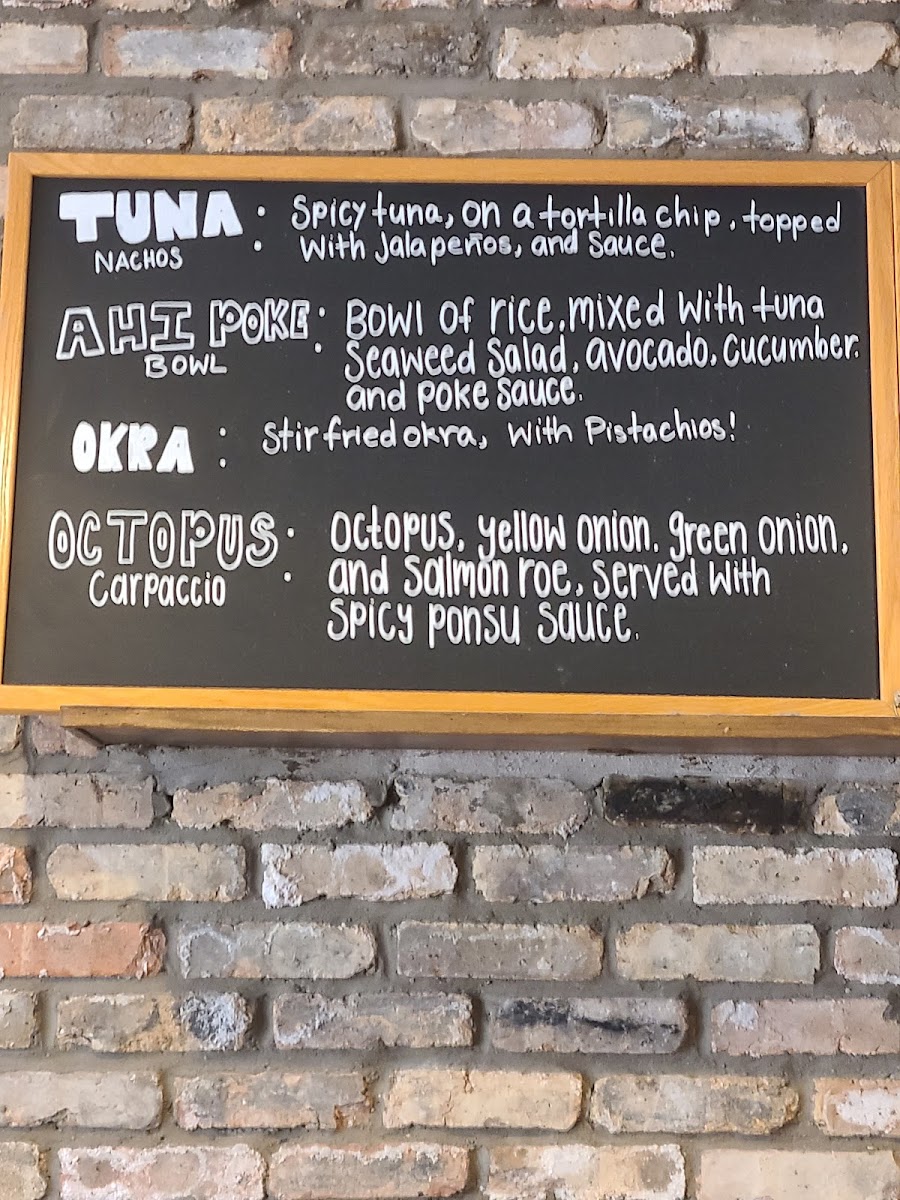 TUNA : Spicy tuna, on a tortilla chip, topped
NACHOS with jalapeños, and sauce.
AHI POKE : Bowl of rice, mixed with tuna
BOWL seaweed salad, avocado, cucumber,
and poke sauce.
OKRA : Stir fried okra, with Pistachios!
OCTOPUS : Octopus, yellow onion, green onion,
Carpaccio and salmon roe, served with
spicy ponsu sauce.